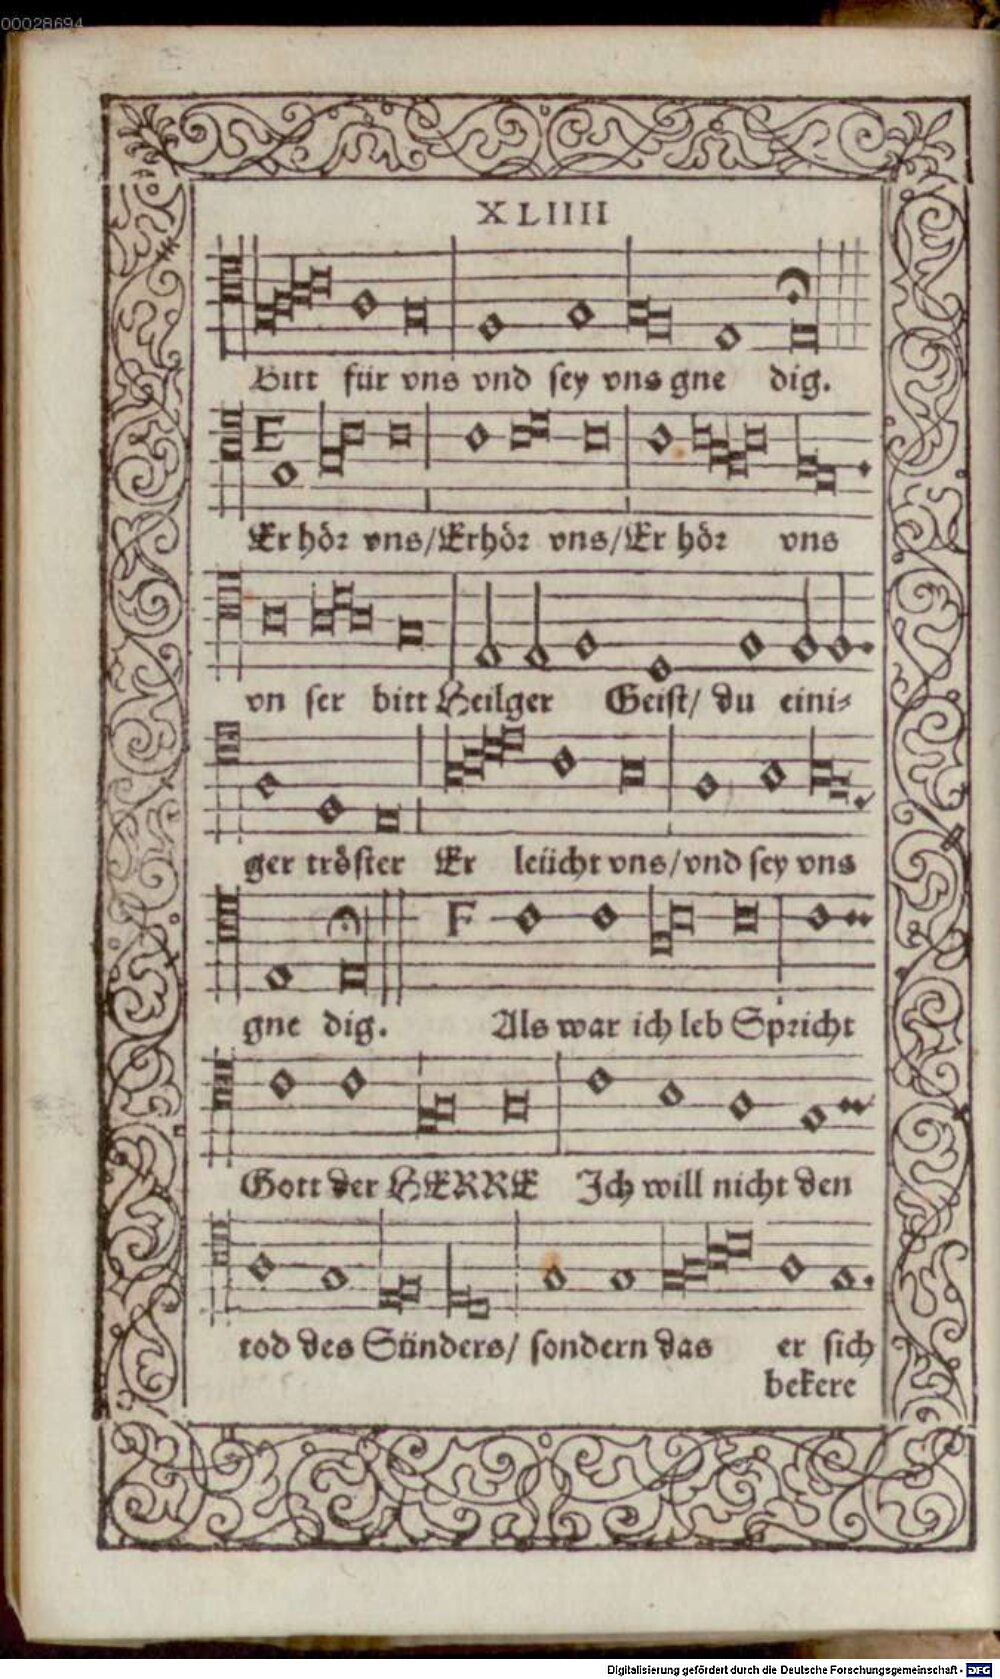 00028694
XLIIII
Bitt für vns vnd sey vns gne dig.
Er hör vns/Erhör vns/Er hör vns
vn ser bitt Heilger Geist/ du eini⸗
ger tröster Er leücht vns/vnd sey vns
gne dig. Als war ich leb Spricht
Gott der HERRE Ich will nicht den
tod des Sünders/ sondern das er sich
bekere
Digitalisierung gefördert durch die Deutsche Forschungsgemeinschaft - DFG